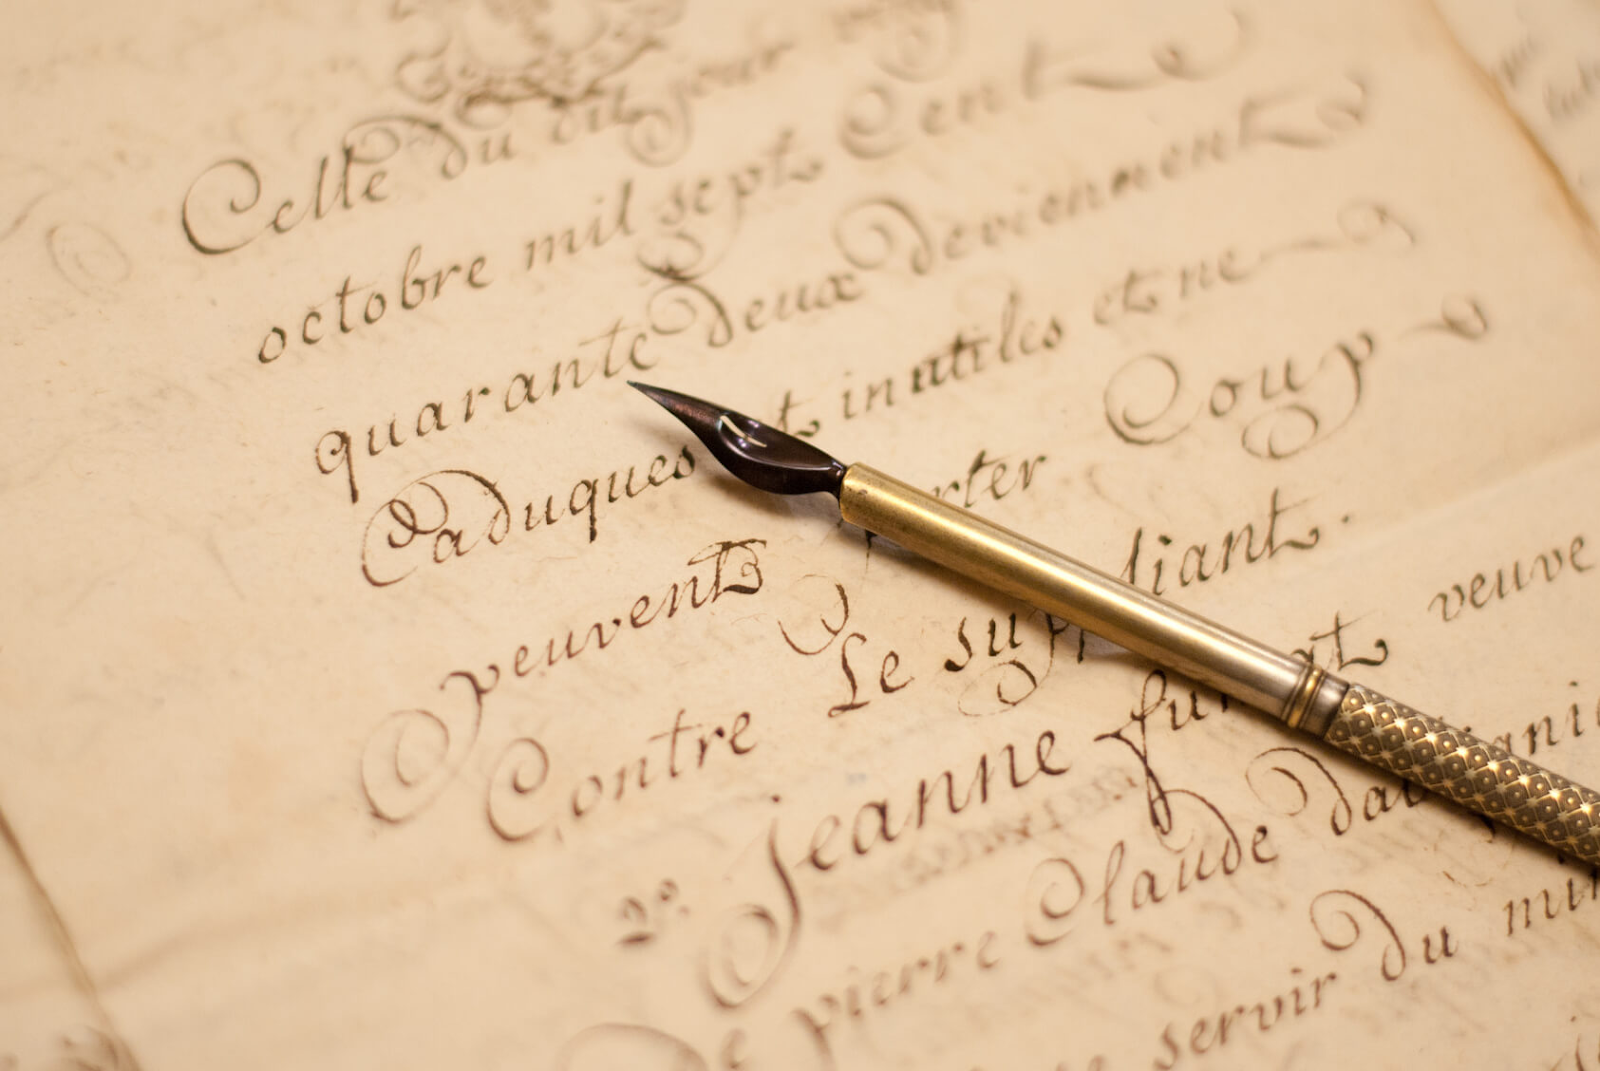 Celle du dit jour
octobre mil sept Cent
quarante deux deviennent
Caduques et inutiles et ne
peuvent porter Coup
Contre Le suppliant.
2o Jeanne furgat veuve
De pierre Claude
servir du